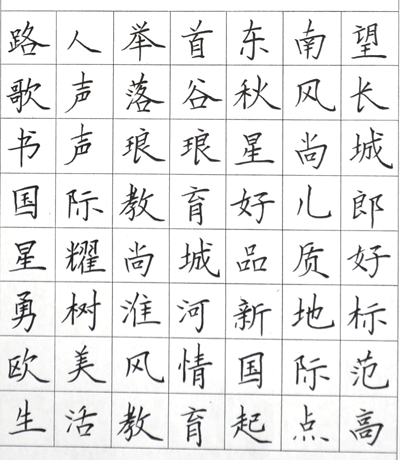 路人举首东南望
歌声落谷秋风长
书声琅琅星尚城
国际教育好儿郎
星耀尚城品质好
勇树淮河新地标
欧美风情国际范
生活教育起点高